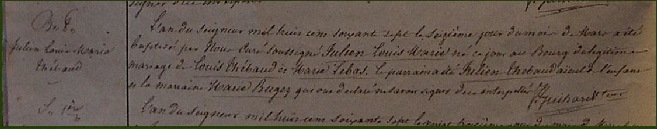 B. P.
Julien Louis Marie
Thébaud
L'an du seigneur mil huit cent soixante sept le seizième jour du mois de Mars a été
baptisé par Nous Curé soussigné Julien Louis Marie né ce jour au Bourg du légitime
mariage de Louis Thébaud et Marie Lebos. Le parrain a été Julien Thebaud aïeul de l'enfant
et la marraine Marie Bugez qui ont déclaré ne savoir signer de ce interpellés
L'an du seigneur mil huit cent soixante sept le